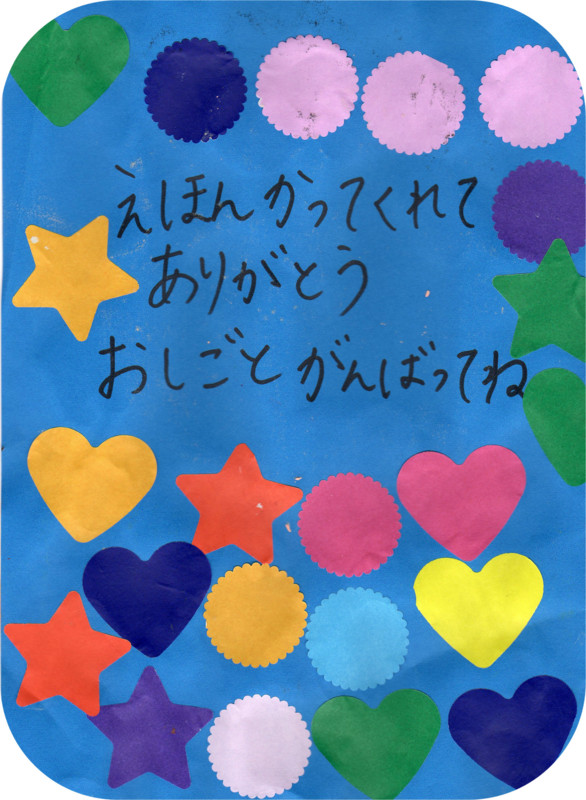 えほんかってくれて
ありがとう
おしごとがんばってね